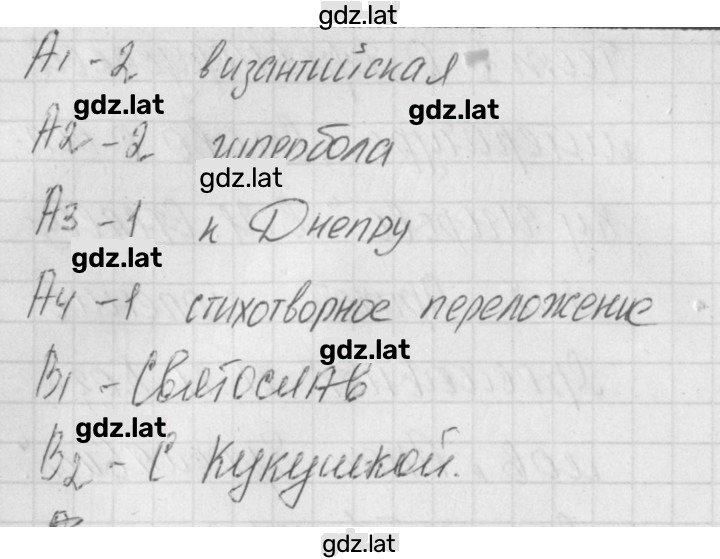 gdz.lat
А1 - 2 византийская
gdz.lat
gdz.lat
А2 - 2 гипербола
gdz.lat
А3 - 1 к Днепру
gdz.lat
А4 - 1 стихотворное переложение
gdz.lat
В1 - Святослав
gdz.lat
В2 - С кукушкой.
gdz.lat